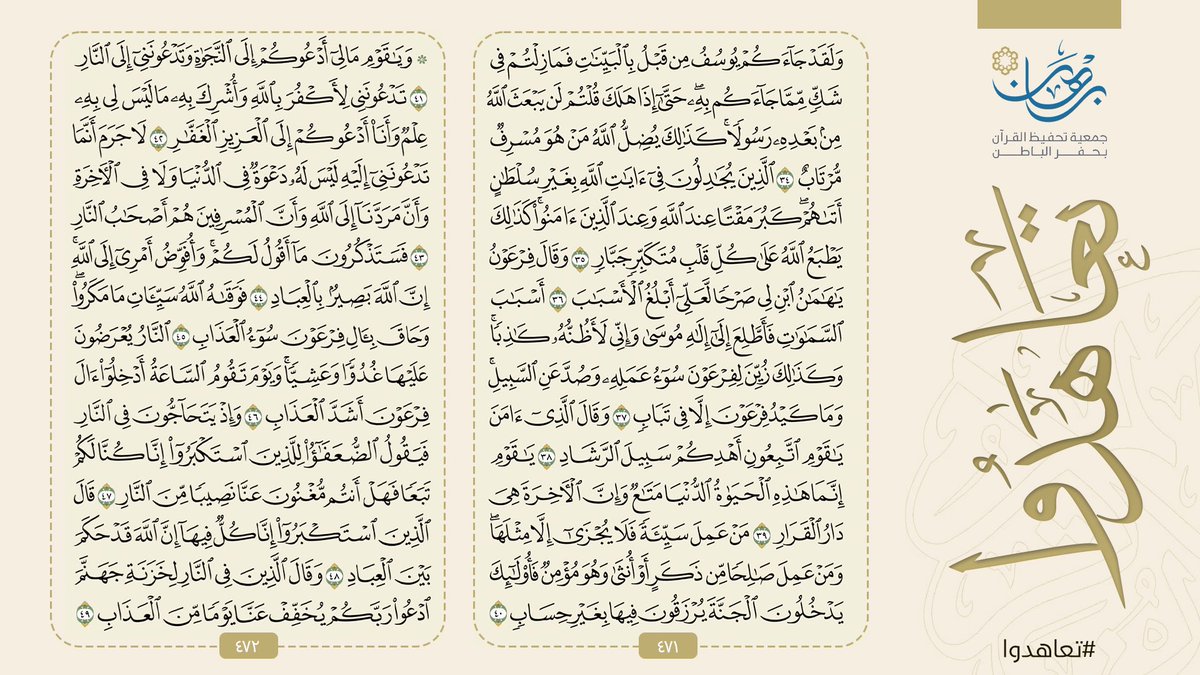 برهان
جمعية تحفيظ القرآن
بحفر الباطن
تعاهدوا
#تعاهدوا
وَلَقَدْ جَآءَكُمْ يُوسُفُ مِن قَبْلُ بِٱلْبَيِّنَٰتِ فَمَا زِلْتُمْ فِى
شَكٍّ مِّمَّا جَآءَكُم بِهِۦ ۖ حَتَّىٰٓ إِذَا هَلَكَ قُلْتُمْ لَن يَبْعَثَ ٱللَّهُ
مِنۢ بَعْدِهِۦ رَسُولًا ۚ كَذَٰلِكَ يُضِلُّ ٱللَّهُ مَنْ هُوَ مُسْرِفٌ
مُّرْتَابٌ ٣٤ ٱلَّذِينَ يُجَٰدِلُونَ فِىٓ ءَايَٰتِ ٱللَّهِ بِغَيْرِ سُلْطَٰنٍ
أَتَىٰهُمْ ۖ كَبُرَ مَقْتًا عِندَ ٱللَّهِ وَعِندَ ٱلَّذِينَ ءَامَنُوا۟ ۚ كَذَٰلِكَ
يَطْبَعُ ٱللَّهُ عَلَىٰ كُلِّ قَلْبِ مُتَكَبِّرٍ جَبَّارٍ ٣٥ وَقَالَ فِرْعَوْنُ
يَٰهَٰمَٰنُ ٱبْنِ لِى صَرْحًا لَّعَلِّىٓ أَبْلُغُ ٱلْأَسْبَٰبَ ٣٦ أَسْبَٰبَ
ٱلسَّمَٰوَٰتِ فَأَطَّلِعَ إِلَىٰٓ إِلَٰهِ مُوسَىٰ وَإِنِّى لَأَظُنُّهُۥ كَٰذِبًا ۚ
وَكَذَٰلِكَ زُيِّنَ لِفِرْعَوْنَ سُوٓءُ عَمَلِهِۦ وَصُدَّ عَنِ ٱلسَّبِيلِ ۚ
وَمَا كَيْدُ فِرْعَوْنَ إِلَّا فِى تَبَابٍ ٣٧ وَقَالَ ٱلَّذِىٓ ءَامَنَ
يَٰقَوْمِ ٱتَّبِعُونِ أَهْدِكُمْ سَبِيلَ ٱلرَّشَادِ ٣٨ يَٰقَوْمِ
إِنَّمَا هَٰذِهِ ٱلْحَيَوٰةُ ٱلدُّنْيَا مَتَٰعٌ وَإِنَّ ٱلْءَاخِرَةَ هِىَ
دَارُ ٱلْقَرَارِ ٣٩ مَنْ عَمِلَ سَيِّئَةً فَلَا يُجْزَىٰٓ إِلَّا مِثْلَهَا ۖ
وَمَنْ عَمِلَ صَٰلِحًا مِّن ذَكَرٍ أَوْ أُنثَىٰ وَهُوَ مُؤْمِنٌ فَأُو۟لَٰٓئِكَ
يَدْخُلُونَ ٱلْجَنَّةَ يُرْزَقُونَ فِيهَا بِغَيْرِ حِسَابٍ ٤٠
٤٧١
۞ وَيَٰقَوْمِ مَا لِىٓ أَدْعُوكُمْ إِلَى ٱلنَّجَوٰةِ وَتَدْعُونَنِىٓ إِلَى ٱلنَّارِ
٤١ تَدْعُونَنِى لِأَكْفُرَ بِٱللَّهِ وَأُشْرِكَ بِهِۦ مَا لَيْسَ لِى بِهِۦ
عِلْمٌ وَأَنَا۠ أَدْعُوكُمْ إِلَى ٱلْعَزِيزِ ٱلْغَفَّٰرِ ٤٢ لَا جَرَمَ أَنَّمَا
تَدْعُونَنِىٓ إِلَيْهِ لَيْسَ لَهُۥ دَعْوَةٌ فِى ٱلدُّنْيَا وَلَا فِى ٱلْءَاخِرَةِ
وَأَنَّ مَرَدَّنَآ إِلَى ٱللَّهِ وَأَنَّ ٱلْمُسْرِفِينَ هُمْ أَصْحَٰبُ ٱلنَّارِ
٤٣ فَسَتَذْكُرُونَ مَآ أَقُولُ لَكُمْ ۚ وَأُفَوِّضُ أَمْرِىٓ إِلَى ٱللَّهِ ۚ
إِنَّ ٱللَّهَ بَصِيرٌۢ بِٱلْعِبَادِ ٤٤ فَوَقَىٰهُ ٱللَّهُ سَيِّـَٔاتِ مَا مَكَرُوا۟ ۖ
وَحَاقَ بِـَٔالِ فِرْعَوْنَ سُوٓءُ ٱلْعَذَابِ ٤٥ ٱلنَّارُ يُعْرَضُونَ
عَلَيْهَا غُدُوًّا وَعَشِيًّا ۖ وَيَوْمَ تَقُومُ ٱلسَّاعَةُ أَدْخِلُوٓا۟ ءَالَ
فِرْعَوْنَ أَشَدَّ ٱلْعَذَابِ ٤٦ وَإِذْ يَتَحَآجُّونَ فِى ٱلنَّارِ
فَيَقُولُ ٱلضُّعَفَٰٓؤُا۟ لِلَّذِينَ ٱسْتَكْبَرُوٓا۟ إِنَّا كُنَّا لَكُمْ
تَبَعًا فَهَلْ أَنتُم مُّغْنُونَ عَنَّا نَصِيبًا مِّنَ ٱلنَّارِ ٤٧ قَالَ
ٱلَّذِينَ ٱسْتَكْبَرُوٓا۟ إِنَّا كُلٌّ فِيهَآ إِنَّ ٱللَّهَ قَدْ حَكَمَ
بَيْنَ ٱلْعِبَادِ ٤٨ وَقَالَ ٱلَّذِينَ فِى ٱلنَّارِ لِخَزَنَةِ جَهَنَّمَ
ٱدْعُوا۟ رَبَّكُمْ يُخَفِّفْ عَنَّا يَوْمًا مِّنَ ٱلْعَذَابِ ٤٩
٤٧٢